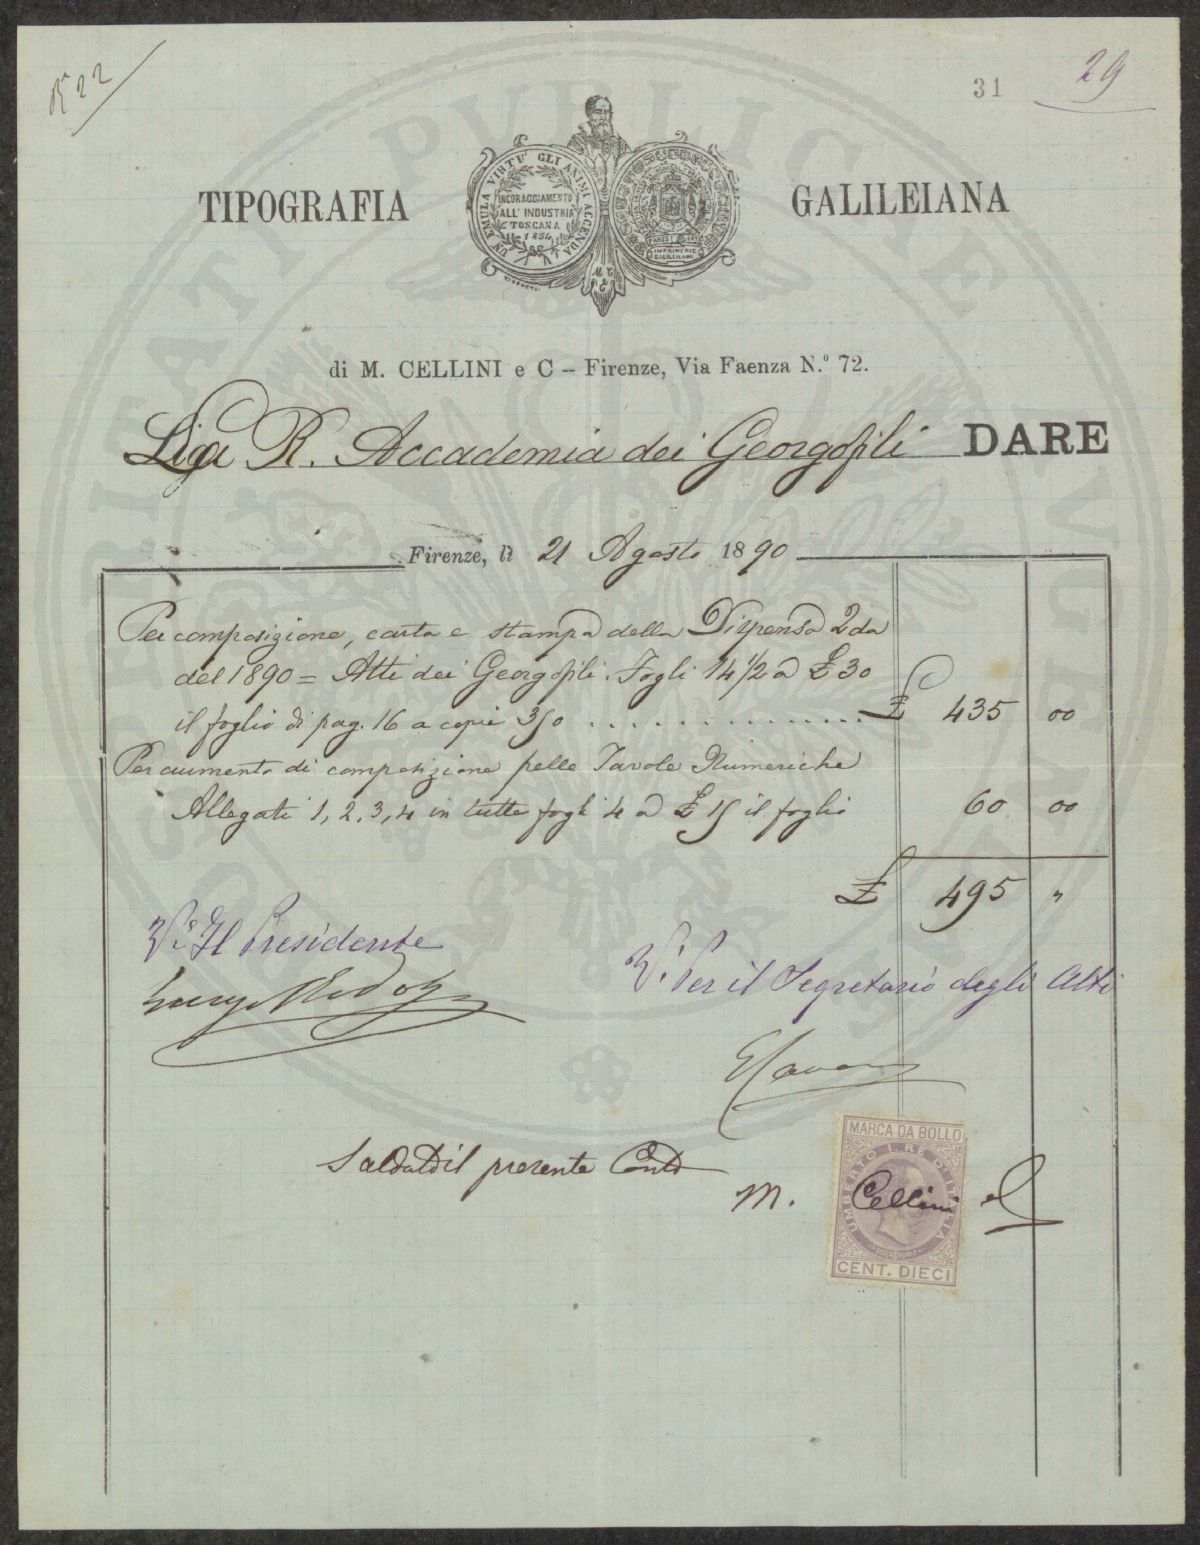 22
31
29
TIPOGRAFIA
GALILEIANA
UN EMULA VIRTU' GLI ANIMI ACCENDA
INCORAGGIAMENTO
ALL' INDUSTRIA
TOSCANA
1854
IMPRIMERIE
GALILEIANE
di M. CELLINI e C – Firenze, Via Faenza N.º 72.
R. Accademia dei Georgofili DARE
Firenze, lì 21 Agosto 1890
Per composizione, carta e stampa della Dispensa 2da
del 1890 = Atti dei Georgofili. Fogli 14 1/2 a £ 30
il foglio di pag. 16 a copie 350 .............. £ 435 00
Per aumento di composizione pelle Tavole Numeriche
Allegati 1, 2, 3, 4 in tutto fogli 4 a £ 15 il foglio 60 00
£ 495 "
Vº Il Presidente
Vº Per il Segretario degli Atti
Saldato il presente Conto
MARCA DA BOLLO
UMBERTO I. RE D'ITALIA
M. Cellini e C
CENT. DIECI